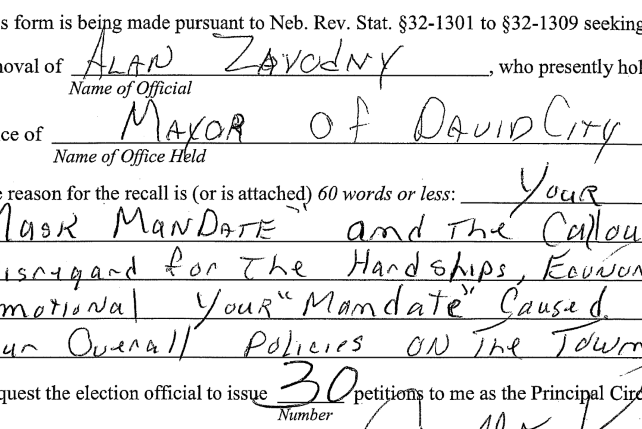 s form is being made pursuant to Neb. Rev. Stat. §32-1301 to §32-1309 seeking
noval of ALAN ZAVODNY, who presently hol
Name of Official
ce of MAYOR OF DAVID CITY
Name of Office Held
e reason for the recall is (or is attached) 60 words or less: YOUR
Mask MANDATE" and The Callou
isregard for The Hardships, Econom
motional YOUR "Mandate" Caused.
ur Overall Policies ON The Town
quest the election official to issue 30 petitions to me as the Principal Circ
Number